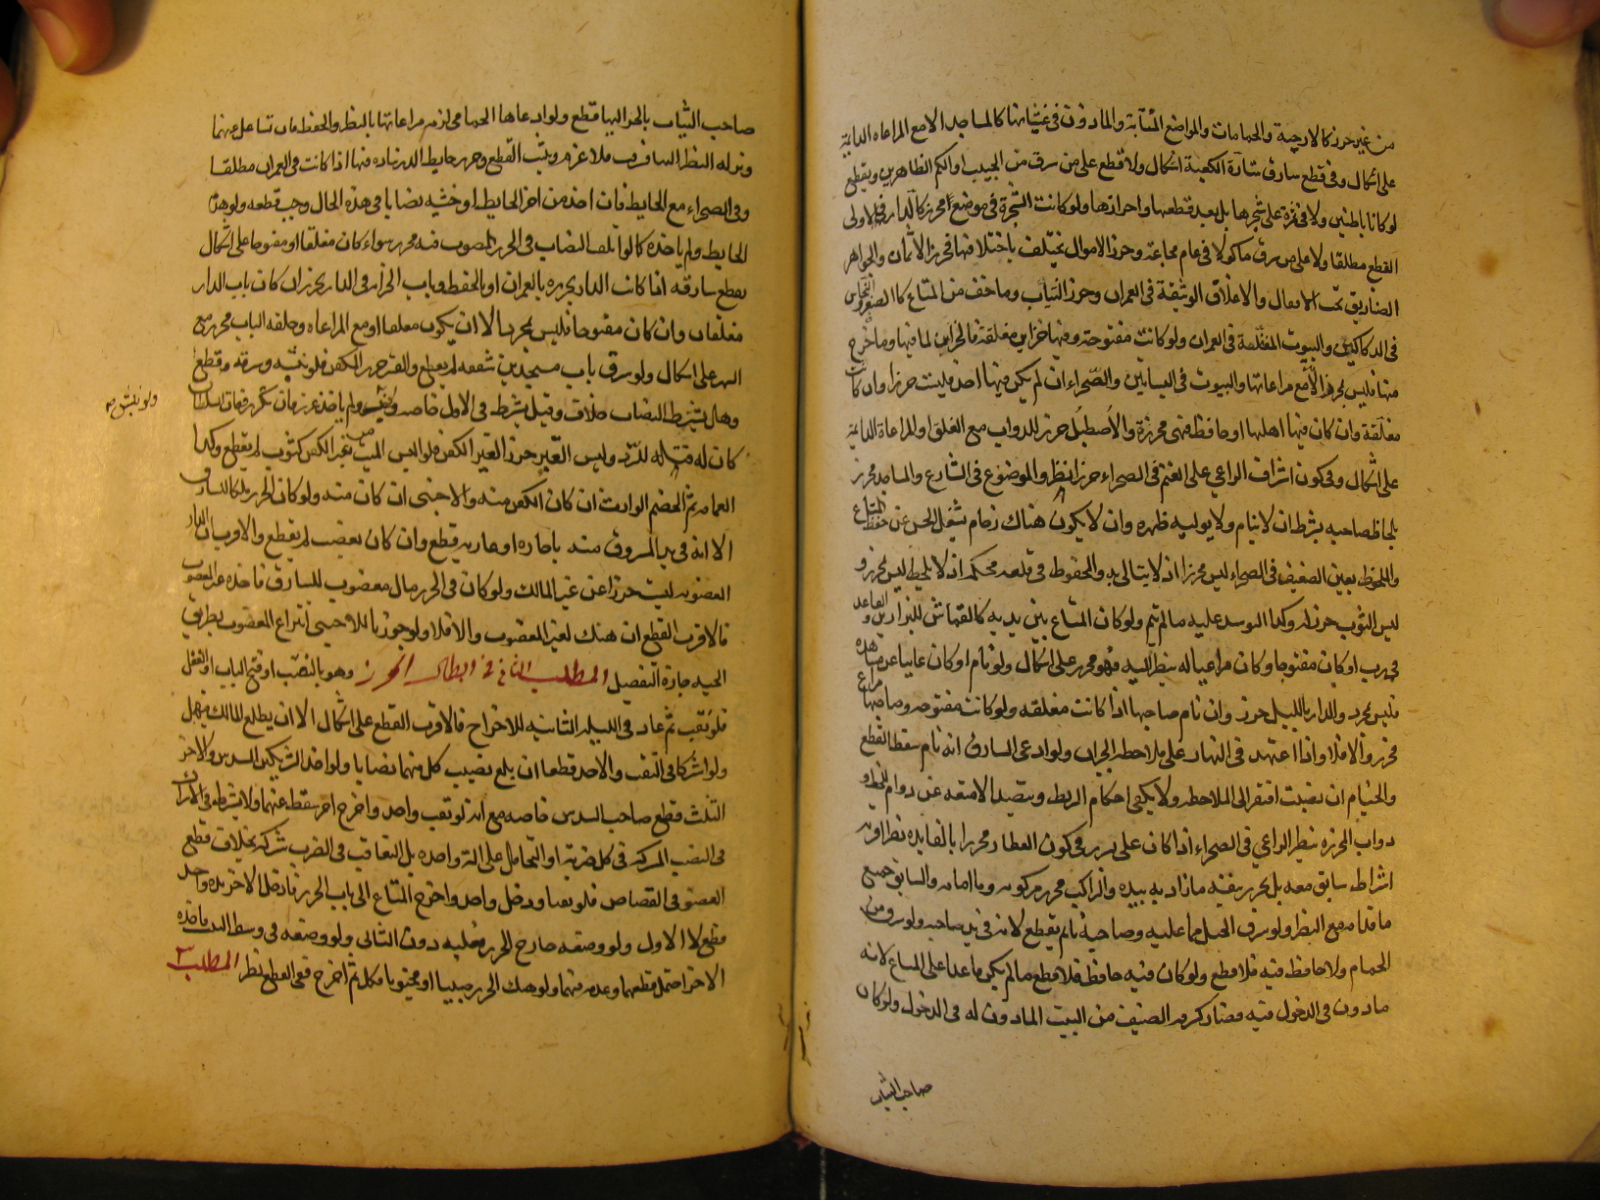 من غير حرز كالارحية والحمامات والمواضع المنتابة والمأذون في غشيانها كالمساجد الا مع المراعاة الدايمة
على اشكال وفي قطع سارق ستارة الكعبة اشكال ولا قطع على من سرق من الجيب او الكم الظاهرين ويقطع
لو كانا باطنين ولا في ثمرة على شجرها بل بعد قطعها واحرازها ولو كانت الشجرة في موضع محرز كالدار فالاولى
القطع مطلقا ولا على من سرق ماكولا في عام مجاعة وحرز الاموال يختلف باختلافها فحرز الاثمان والجواهر
الصناديق تحت الاقفال والاغلاق الوثيقة في العمران وحرز الثياب وما خف من المتاع كالصفر والنحاس
في الدكاكين والبيوت المقفلة في العمران ولو كانت مفتوحة وفيها خزاين مغلقة فالخزاين لما فيها وما خرج
منها فليس بمحرز الا مع مراعاتها والبيوت في البساتين والصحراء ان لم يكن فيها احد فليست حرزا وان كانت
مغلقة وان كان فيها اهلها او حافظ فهي محرزة والاصطبل حرز للدواب مع الغلق او المراعاة الدايمة
على اشكال وفي كون اشراف الراعي على الغنم في الصحراء حرزا نظر والموضوع في الشارع والمساجد محرز
بلحاظ صاحبه بشرط ان لا ينام ولا يوليه ظهره وان لا يكون هناك زحام يشغل الحس عن حفظ المتاع
والملحوظ بعين الضعيف في الصحراء ليس محرزا اذ لا يتالى به والمحفوظ في قلعة محكمة اذا لم يلحظ ليس بمحرز و
ليس الثوب حرز له وكذا التوسد عليه ما لم ينم ولو كان المتاع بين يديه كالقماش للبزازين والقاعد
في درب او كان مفتوحا وكان مراعيا له ينظر اليه فهو محرز على اشكال ولو نام او كان غايبا عن مشاهدة
فليس بمحرز والدار بالليل حرز وان نام صاحبها اذا كانت مغلقة ولو كانت مفتوحة وصاحبها مراع
فحرز والا فلا واذا اعتمد في النهار على ملاحظة الجيران ولو ادعى السارق انه نام سقط القطع
والخيام ان نصبت افتقر الى الملاحظة ولا يكفي احكام الربط وتنضيد الامتعة عن دوام اللحاظ و
دواب محرزة بنظر الراعي في الصحراء اذا كان على نشز وفي كون القطار محرزا بالقايد نظر اقربه
اشتراط سايق معه بل يحرز بنفسه ما زمامه بيده والراكب يحرز مركوبه وما امامه والسايق جميع
ما قدامه مع النظر ولو سرق الجمل بما عليه وصاحبه نائم لم يقطع لانه في يد صاحبه ولو سرق من
الحمام ولا حافظ فيه فلا قطع ولو كان فيه حافظ فلا قطع ما لم يكن قاعدا على المتاع لانه
ماذون في الدخول فيه فصار كسرقة الضيف من البيت الماذون له في الدخول ولو كان
صاحب الثياب
صاحب الثياب بالحر اليها قطع ولو اودعها الحمامي لزمه مراعاتها بالنظر والحفظ فان تشاغل عنها
وترك النظر اليها فسرقت فلا غرم وثبت القطع وحرز حايط الدار بناؤه فيها اذا كانت في العمران مطلقا
وفي الصحراء مع الحافظ فان اخذ من اجر الحايط او خشبه نصابا في هذه الحال وجب قطعه ولو هدم
الحايط ولم ياخذه كما لو اتلف النصاب في الحرز وباب المنصوب فيه محرز سواء كان مغلقا او مفتوحا على اشكال
يقطع سارقه اذا كانت الدار محرزة بالعمران او بالحفظ وباب الخزانة في الدار محرز ان كان باب الدار
مغلقا وان كان مفتوحا فليس بمحرز الا ان يكون مغلقا او مع المراعاة وحلقة الباب محرزة مع
السمر على اشكال ولو سرق باب مسجد لم يقطع والقبر حرز الكفن فلو نبشه وسرقه وقطع
وهل يشترط النصاب خلاف وقيل يشترط في الاول خاصة ولو نبش ولم ياخذ عزر فان تكرر وفات السلطان
كان له قتله للردع وليس القبر حرز لغير الكفن فلو البس الميت من غير الكفن كثوب لم يقطع وكذا
العمامة ثم الخصم الوارث ان كان الكفن منه والاجنبي ان كان منه ولو كان الحرز ملكا للسارق
الا انه في يد المسروق منه باجارة او عارية قطع وان كان بغصب لم يقطع والاقرب ان الدار
المغصوبة ليست حرزا عن غير المالك ولو كان في الحرز مال مغصوب للسارق فاخذ غير المغصوب
فالاقرب القطع ان هتك لغير المغصوب والا فلا ولو جوزنا للاجنبي انتزاع المغصوب بطريق
الحسبة جاء التفصيل المطلب الثاني في ابطال الحرز وهو بالنقب او فتح الباب او القفل
فلو نقب ثم عاد في الليلة الثانية للاخراج فالاقرب القطع على اشكال الا ان يطلع المالك ويهمل
ولو اشتركا في النقب والاخذ قطعا ان بلغ نصيب كل منهما نصابا ولو اخذ احد الشريكين السدس والاخر
الثلث قطع صاحب السدس خاصة مع انه لو نقب واحد واخرج اخر سقط عنهما ولا يشترط في الاشتراك
في النقب الشركة في كل ضربة او التحامل على الة واحدة بل التعاقب في الضرب شركة بخلاف قطع
العضو في القصاص فلو نقبا ودخل واحد واخرج المتاع الى باب الحرز فادخل الاخر يده واخذ
قطع لا الاول ولو وضعه خارج الحرز فعليه دون الثاني ولو وضعه في وسط النقب فاخذه
الاخر احتمل قطعهما وعدمه فيهما ولو هتك الحرز صبيا او مجنونا فكمل ثم اخرج ففي القطع نظر المطلب ٣
ولو نبش صح